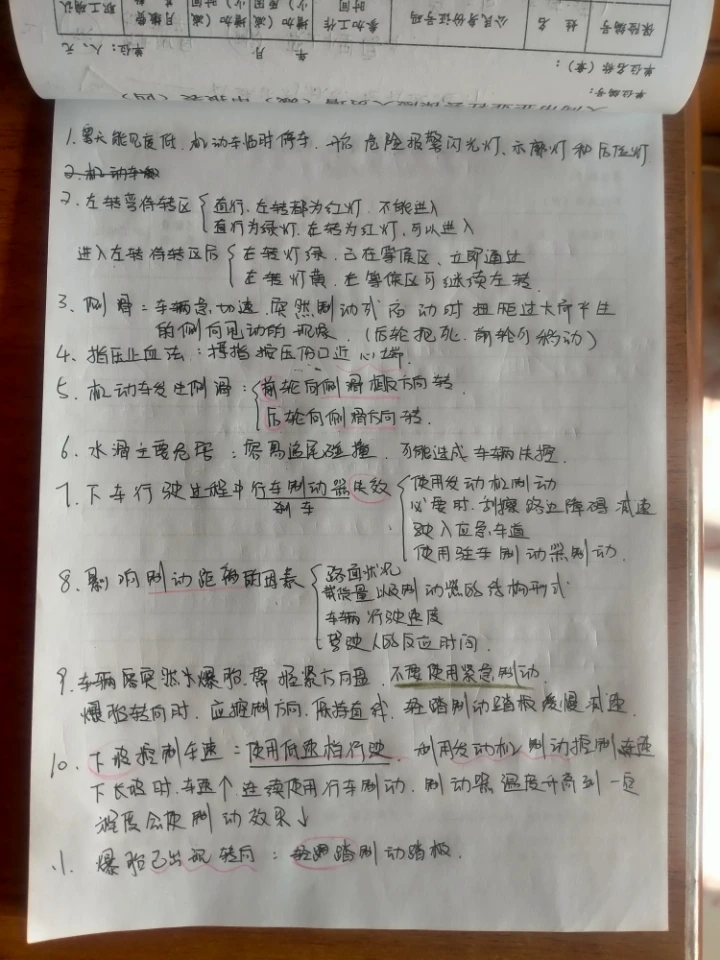 单位编号：
单位名称（章）：
年 月 单位：人、元
保险编号 姓名 公民身份证号码 参加工作时间 增加（减少）原因 增加（减少）时间 月缴费 职工确认
1. 雾天能见度低，机动车临时停车，开启危险报警闪光灯、示廓灯和后位灯
2. 机动车
2. 左转弯待转区 直行、左转都为红灯，不能进入
直行为绿灯，左转为红灯，可以进入
进入左转待转区后 左转灯绿，已在等候区，立即通过
左转灯黄，在等候区可继续左转
3. 侧滑：车辆急加速、突然制动或启动时扭距过大而产生
的侧向甩动的现象。（后轮抱死，前轮可移动）
4. 指压止血法：拇指按压伤口近心端.
5. 机动车发生侧滑：前轮向侧滑相反方向转
后轮向侧滑方向转.
6. 水滑主要危害：容易追尾碰撞，可能造成车辆失控.
7. 下车行驶过程中行车制动器失效 使用发动机制动
刹车 必要时，刮擦路边障碍减速
驶入应急车道
使用驻车制动器制动.
8. 影响制动距离的因素 路面状况
载质量以及制动器的结构形式
车辆行驶速度
驾驶人的反应时间.
9. 车辆突然爆胎，需握紧方向盘，不要使用紧急制动.
爆胎转向时，应控制方向，保持直线，轻踏制动踏板缓慢减速.
10. 下坡控制车速：使用低速档行驶，利用发动机制动控制车速
下长坡时，车速个，连续使用行车制动，制动器温度升高到一定
温度会使制动效果↓
11. 爆胎已出现转向：轻踏制动踏板.